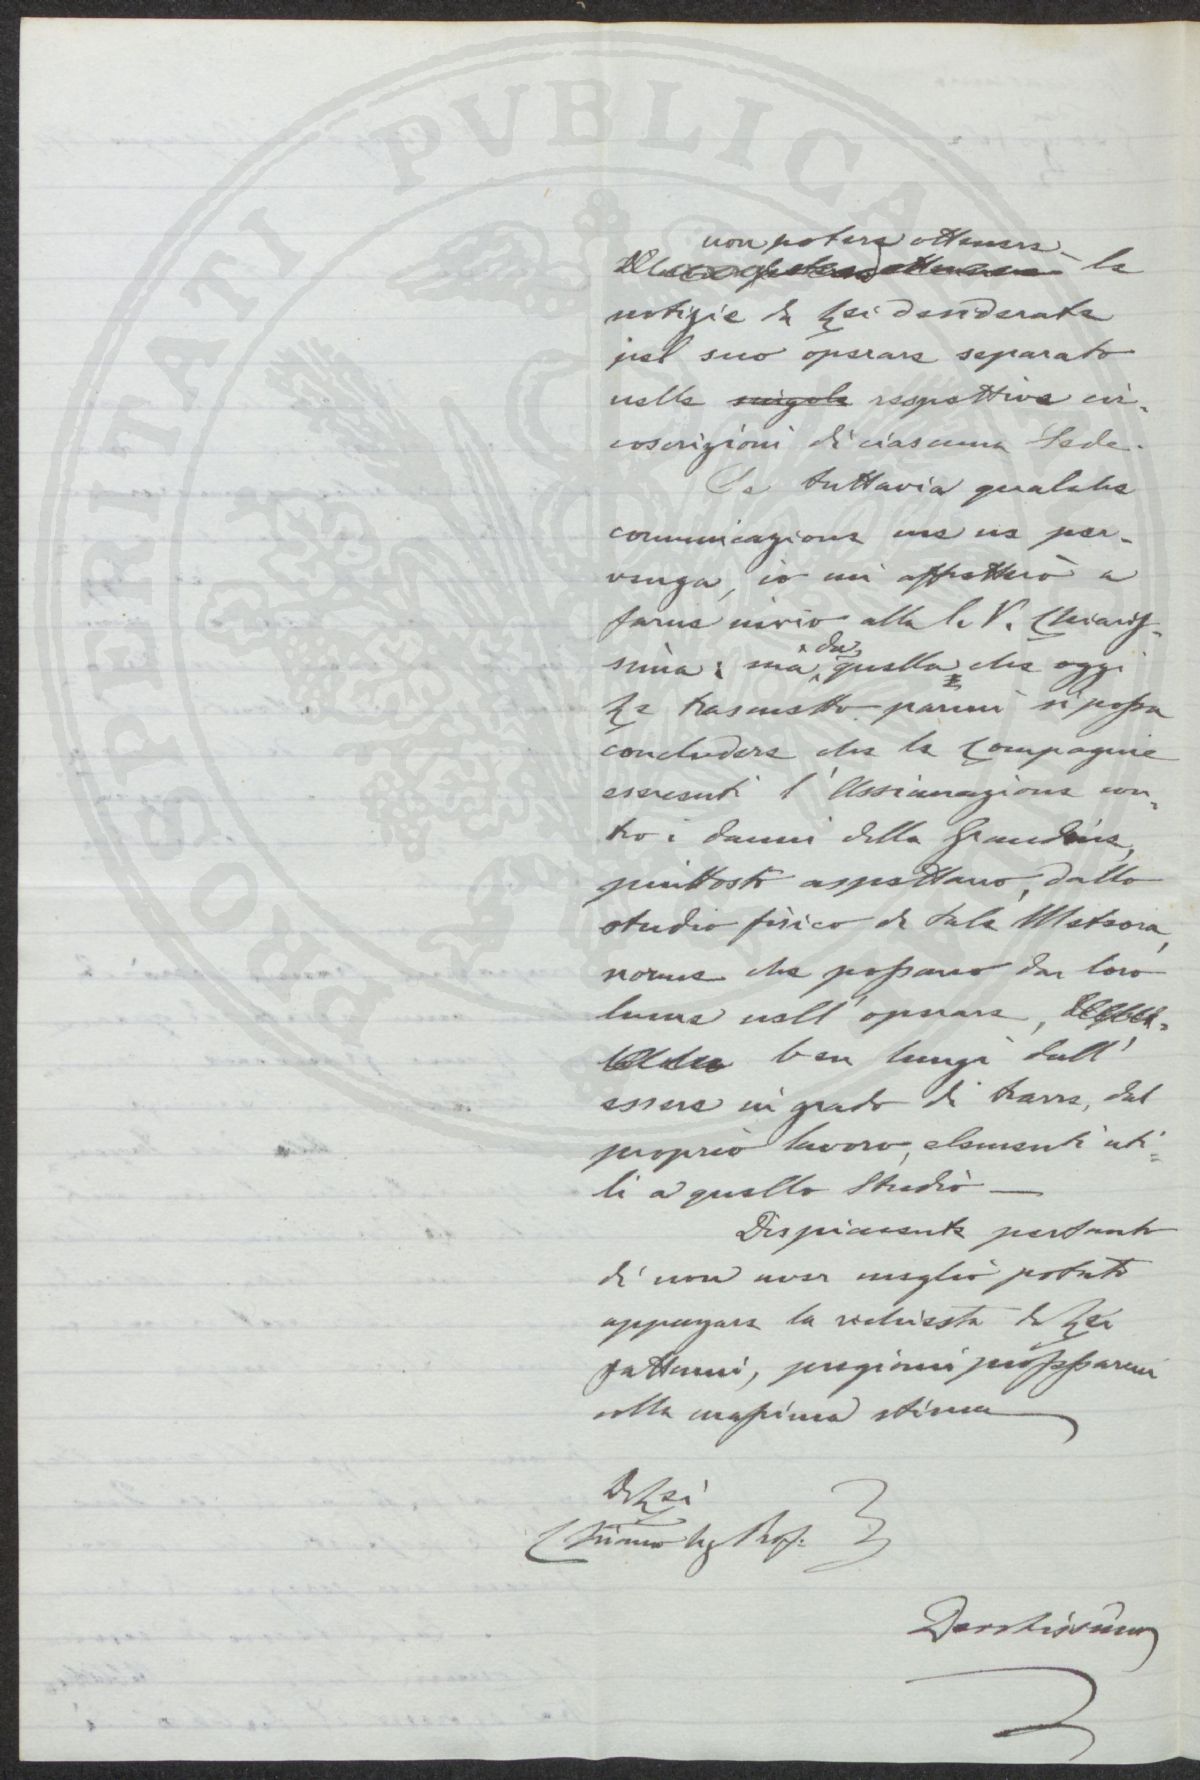 PROSPERITATI PUBLICAE
non potere ottenere
le
notizie da Lei desiderate
pel suo operare separato
nelle singole respettive cir-
coscrizioni di ciascuna Sede.
Se tuttavia qualche
comunicazione me ne per-
venga, io mi affretterò a
farne invio alla S. V. Chiaris-
sima; ma da quella che oggi
Le trasmetto parmi si possa
concludere che le Compagnie
esercenti l'Assicurazione con-
tro i danni della Grandine,
piuttosto aspettano, dallo
studio fisico di tale Meteora,
norme che possano dar loro
lume nell'operare,
ben lungi dall'
essere in grado di trarre, dal
proprio lavoro, elementi uti-
li a quello Studio —
Dispiacente pertanto
di non aver meglio potuto
appagare la richiesta da Lei
fattami, pregiomi professarmi
colla massima stima
Di Lei
Chiarmo Sig Prof:
Devotissimo